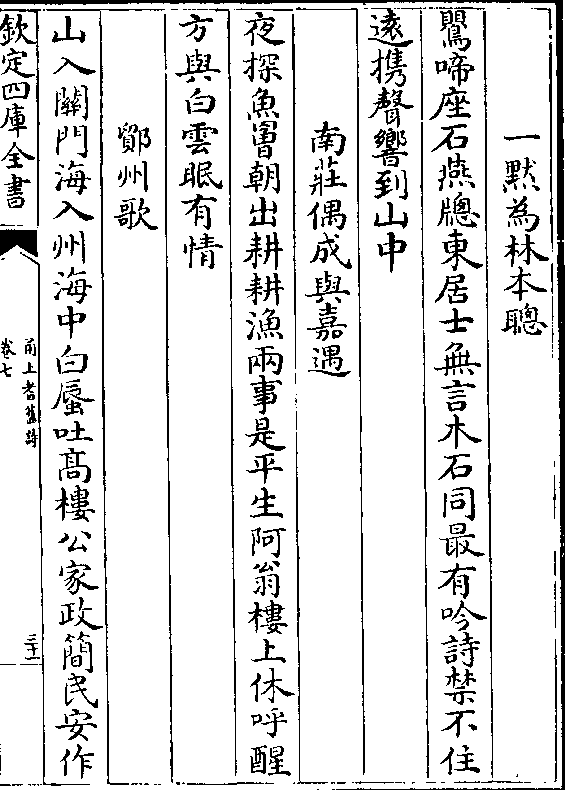 一黙為林本聰
鸎啼座石燕牕東居士無言木石同最有吟詩禁不住
逺携聲響到山中
南莊偶成與嘉遇
夜探魚罾朝出耕耕漁兩事是平生阿翁樓上休呼醒
方與白雲眠有情
鄮州歌
山入關門海入州海中白蜃吐髙樓公家政簡民安作
欽定四庫全書
甬上耆舊詩
卷七
三十一